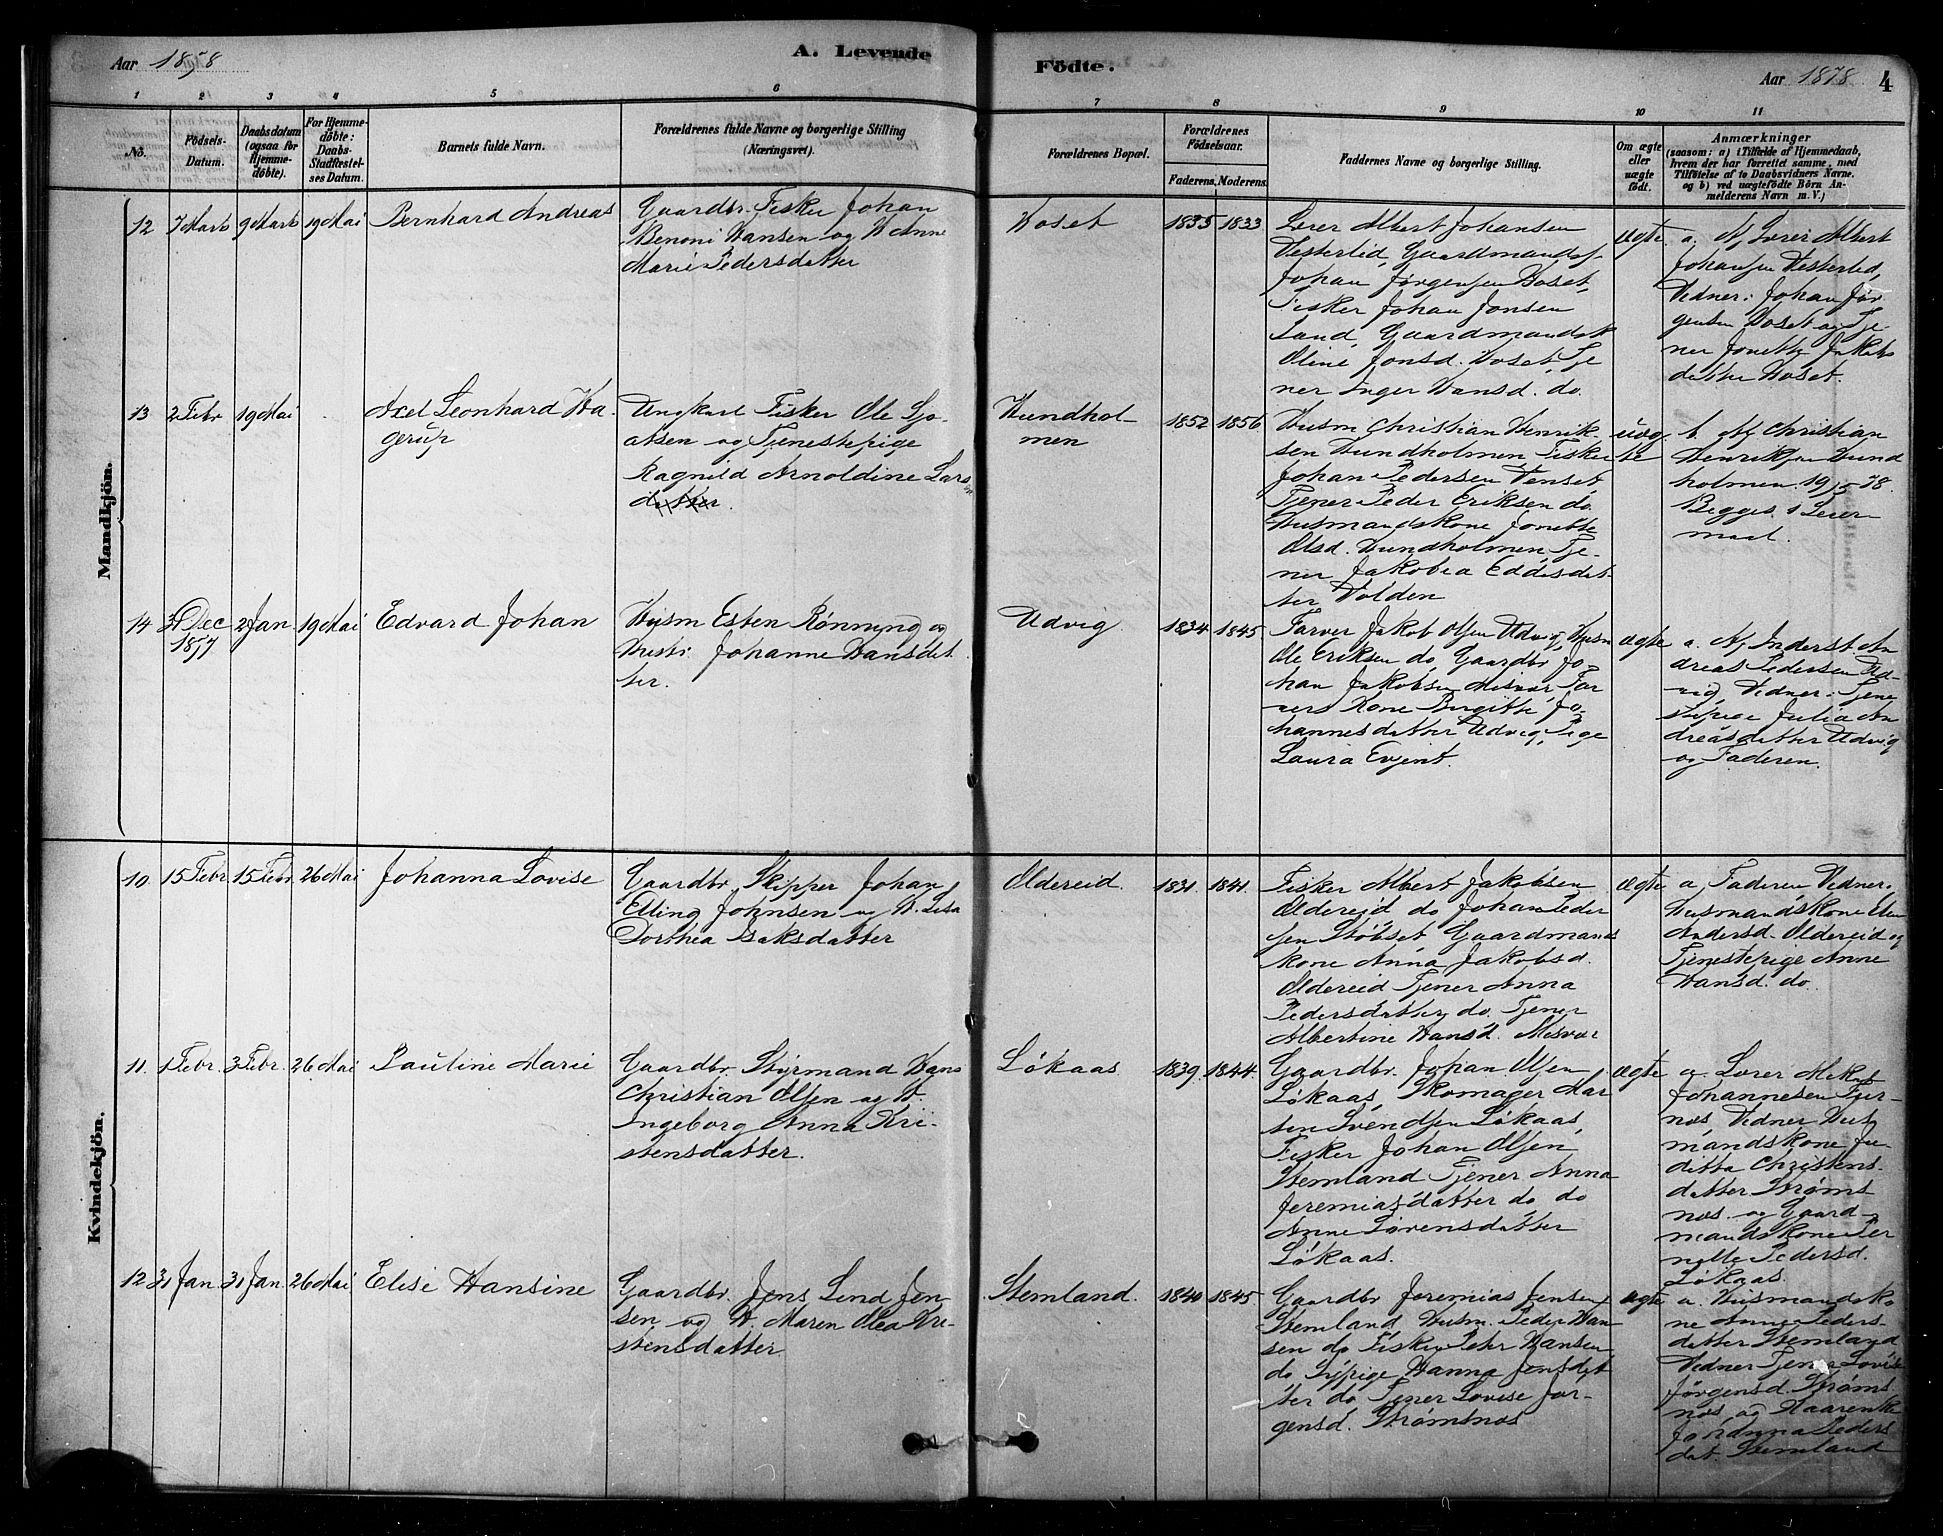 Aar 1878
A. Levende
Födte.
Aar 1878
4
1
2
3
4
5
6
7
8
9
10
11
No.
Födsels-
Datum.
Daabsdatum
(ogsaa for
Hjemme-
döbte).
For Hjemme-
döbte:
Daabs-
Stadfæstel-
ses Datum.
Barnets fulde Navn.
Forældrenes fulde Navne og borgerlige Stilling
(Næringsvei).
Forældrenes Bopæl.
Forældrenes
Födselsaar.
Faderens.
Moderens.
Faddernes Navne og borgerlige Stilling.
Om ægte
eller
uægte
födt.
Anmærkninger
(saasom: a) i Tilfælde af Hjemmedaab,
hvem der har forrettet samme, med
Tilföielse af to Daabsvidners Navne.
og b) ved uægtefödte Börn An-
melderens Navn m. V.)
Mandkjön.
12
7 Marts
9 Marts
19 Mai
Bernhard Andreas
Gaardbr. Fisker Johan
Benoni Hansen og H. Anne
Marie Pedersdatter
Hoset
1835
1833
Lærer Albert Johansen
Vesterlid, Gaardmands.
Johan Jørgensen Hoset,
Fisker Johan Jonsen
Sand, Gaardmandsk
Oline Jonsd. Hoset, Tje
ner Inger Hansd. do.
Ægte
a. Af Lærer Albert
Johansen Vesterlid,
Vidner: Johan Jør
gensen Hoset og Tje
ner Jonette Jakobs
datter Hoset.
13
2 Febr
19 Mai
Axel Leonhard Ha
gerup
Ungkarl Fisker Ole Sjo
atsen og Tjenestepige
Ragnild Arnoldine Lars
datter.
Hundhol-
men
1852
1856
Husm Christian Henrik
sen Hundholmen Fisker
Johan Pedersen Venset
Tjener Peder Eriksen do.
Husmandskone Jonette
Olsd. Hundholmen, Tje-
ner Jakobea Eddisdat-
ter Volden
uæg
te
b. Af Christian
Henriksen Hund
holmen. 19/5 78.
Begges 1 Leier-
maal.
14
31 Dec
1877
2 Jan
19 Mai
Edvard Johan
Husm Esten Rønning og
Hustr. Johanne Hansdat
ter.
Udvig
1834
1845
Farver Jakob Olsen Udvig, Husm
Ole Eriksen do, Gaardbr Jo-
han Jakobsen Misvær, Far
vers Kone Birgitte Jo-
hannesdatter Udvig, Pige
Laura Evjent.
ægte
a. Af Inderst. An
dreas Pedersen Ud-
vig, Vidner: Tjene
stepige Julia An
dreasdatter Udvig
og Faderen.
Kvindekjön.
10.
15 Febr.
15 Febr
26 Mai
Johanna Lovise
Gaardbr. Skipper Johan
Elling Johnsen og H. Lisa
Dorthea Isaksdatter
Oldereid.
1831
1841.
Fisker Albert Jakobsen
Oldereid do Johan Peder
sen Støbset Gaardmands
kone Anna Jakobsd.
Oldereid Tjener Anna
Pedersdatter do. Tjener
Albertine Hansd. Misvær
Ægte
a. Faderen Vidner:
Husmandskone Elen
Andersd. Oldereid og
Tjenestepige Anne
Hansd. do.
11.
1 Febr.
3 Febr.
26 Mai
Pauline Marie
Gaardbr. Styrmand Hans
Christian Olsen og H.
Ingeborg Anna Kri-
stensdatter.
Løkaas
1839.
1844.
Gaardbr. Johan Olsen
Løkaas, Skomager Mar
ten Svendsen Løkaas,
Fisker Johan Olsen
Stemland Tjener Anna
Jeremiasdatter do do
Anne Sørensdatter
Løkaas.
Ægte
a. Lærer Mekal
Johannesen Tur-
nøs, Vidner Hus
mandskone Ju-
ditta Christens-
datter Strøms
nøs og Gaard-
mandskone Per
nelle Pedersd.
Løkaas.
12
31 Jan
31 Jan.
26 Mai
Elise Hansine
Gaardbr. Jens Lind Jen-
sen og H. Maren Olea Kri-
stensdatter
Stemland.
1840
1845
Gaardbr Jeremias Jensen
Stemland Husm. Peder Han-
sen do Fisker Peter Hansen
do Sypige Hanna Jensdat
ter do Tjener Lovise Jør-
gensd. Strømsnøs
Ægte
a. Husmandsko
ne Anne Peders-
datter Stemland
Vidner Tjener Lovise
Jørgensd. Strøms
nøs og
Johanna Peders
dat. Stemland